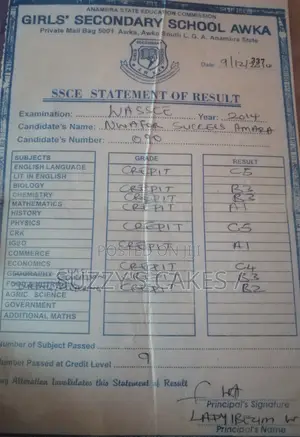 ANAMBRA STATE EDUCATION COMMISSION
GIRLS' SECONDARY SCHOOL AWKA
Private Mail Bag 5001, Awka, Awka South L. G. A. Anambra State
Date 9/12/
SSCE STATEMENT OF RESULT
Examination: WASSCE Year: 2014
Candidate's Name: NWAFOR SUCCESS AMARA
Candidate's Number: 090
SUBJECTS GRADE RESULT
ENGLISH LANGUAGE CREDIT C5
LIT IN ENGLISH
BIOLOGY CREDIT B3
CHEMISTRY CREDIT B3
MATHEMATICS CREDIT A1
HISTORY
PHYSICS CREDIT C5
CRK
IGBO CREDIT A1
COMMERCE
ECONOMICS CREDIT C4
GEOGRAPHY B3
B2
AGRIC. SCIENCE
GOVERNMENT
ADDITIONAL MATHS
POSTED ON
CAKES
Number of Subject Passed
Number Passed at Credit Level 9
Any Alteration Invalidates this Statement of Result
Principal's Signature
Principal's Name